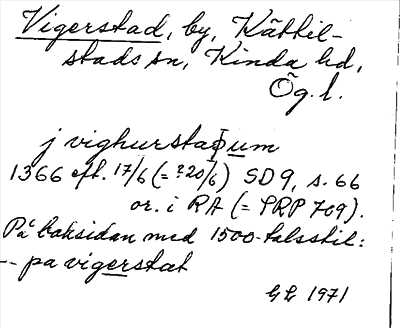 Vigerstad, by, Kättil-
stads sn, Kinda hd,
Ög. l.
j vighurstaþum
1366 eft. 17/6 (= ? 20/6) SD 9, s. 66
or. i RA (= SRP 709).
På baksidan med 1500-talsstil:
-- pa vigerstat
GL 1971